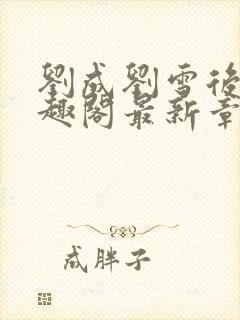 劉成劉雪後
趣閣最新章
成胖子